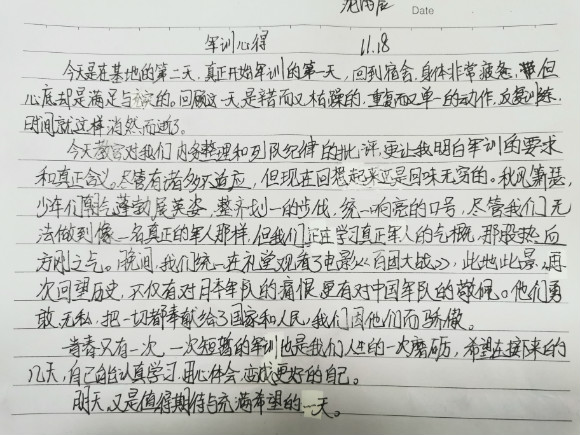 Date
军训心得 11.18
今天是在基地的第二天,真正开始军训的第一天,回到宿舍,身体非常疲惫,但
心底却是满足与充实的。回顾这一天,是辛苦而又枯躁的,重复而又单一的动作,反复训练,
时间就这样消然而逝了。
今天教官对我们内务整理和列队纪律的批评,更让我明白军训的要求
和真正含义。尽管有诸多不适应,但现在回想起来还是回味无穷的。秋风萧瑟,
少年们朝气蓬勃展英姿,整齐划一的步伐,统一响亮的口号,尽管我们无
法做到像一名真正的军人那样,但我们正在学习真正军人的气概,那股热血
方刚之气。晚间,我们统一在礼堂观看了电影《百团大战》,此地此景,再
次回望历史,不仅有对日本军队的痛恨,更有对中国军队的敬佩。他们勇
敢无私,把一切都奉献给了国家和人民,我们因他们而骄傲。
青春只有一次,一次短暂的军训也是我们人生的一次磨砺,希望在接下来的
几天,自己能认真学习,用心体会,变成更好的自己。
明天,又是值得期待与充满希望的一天。